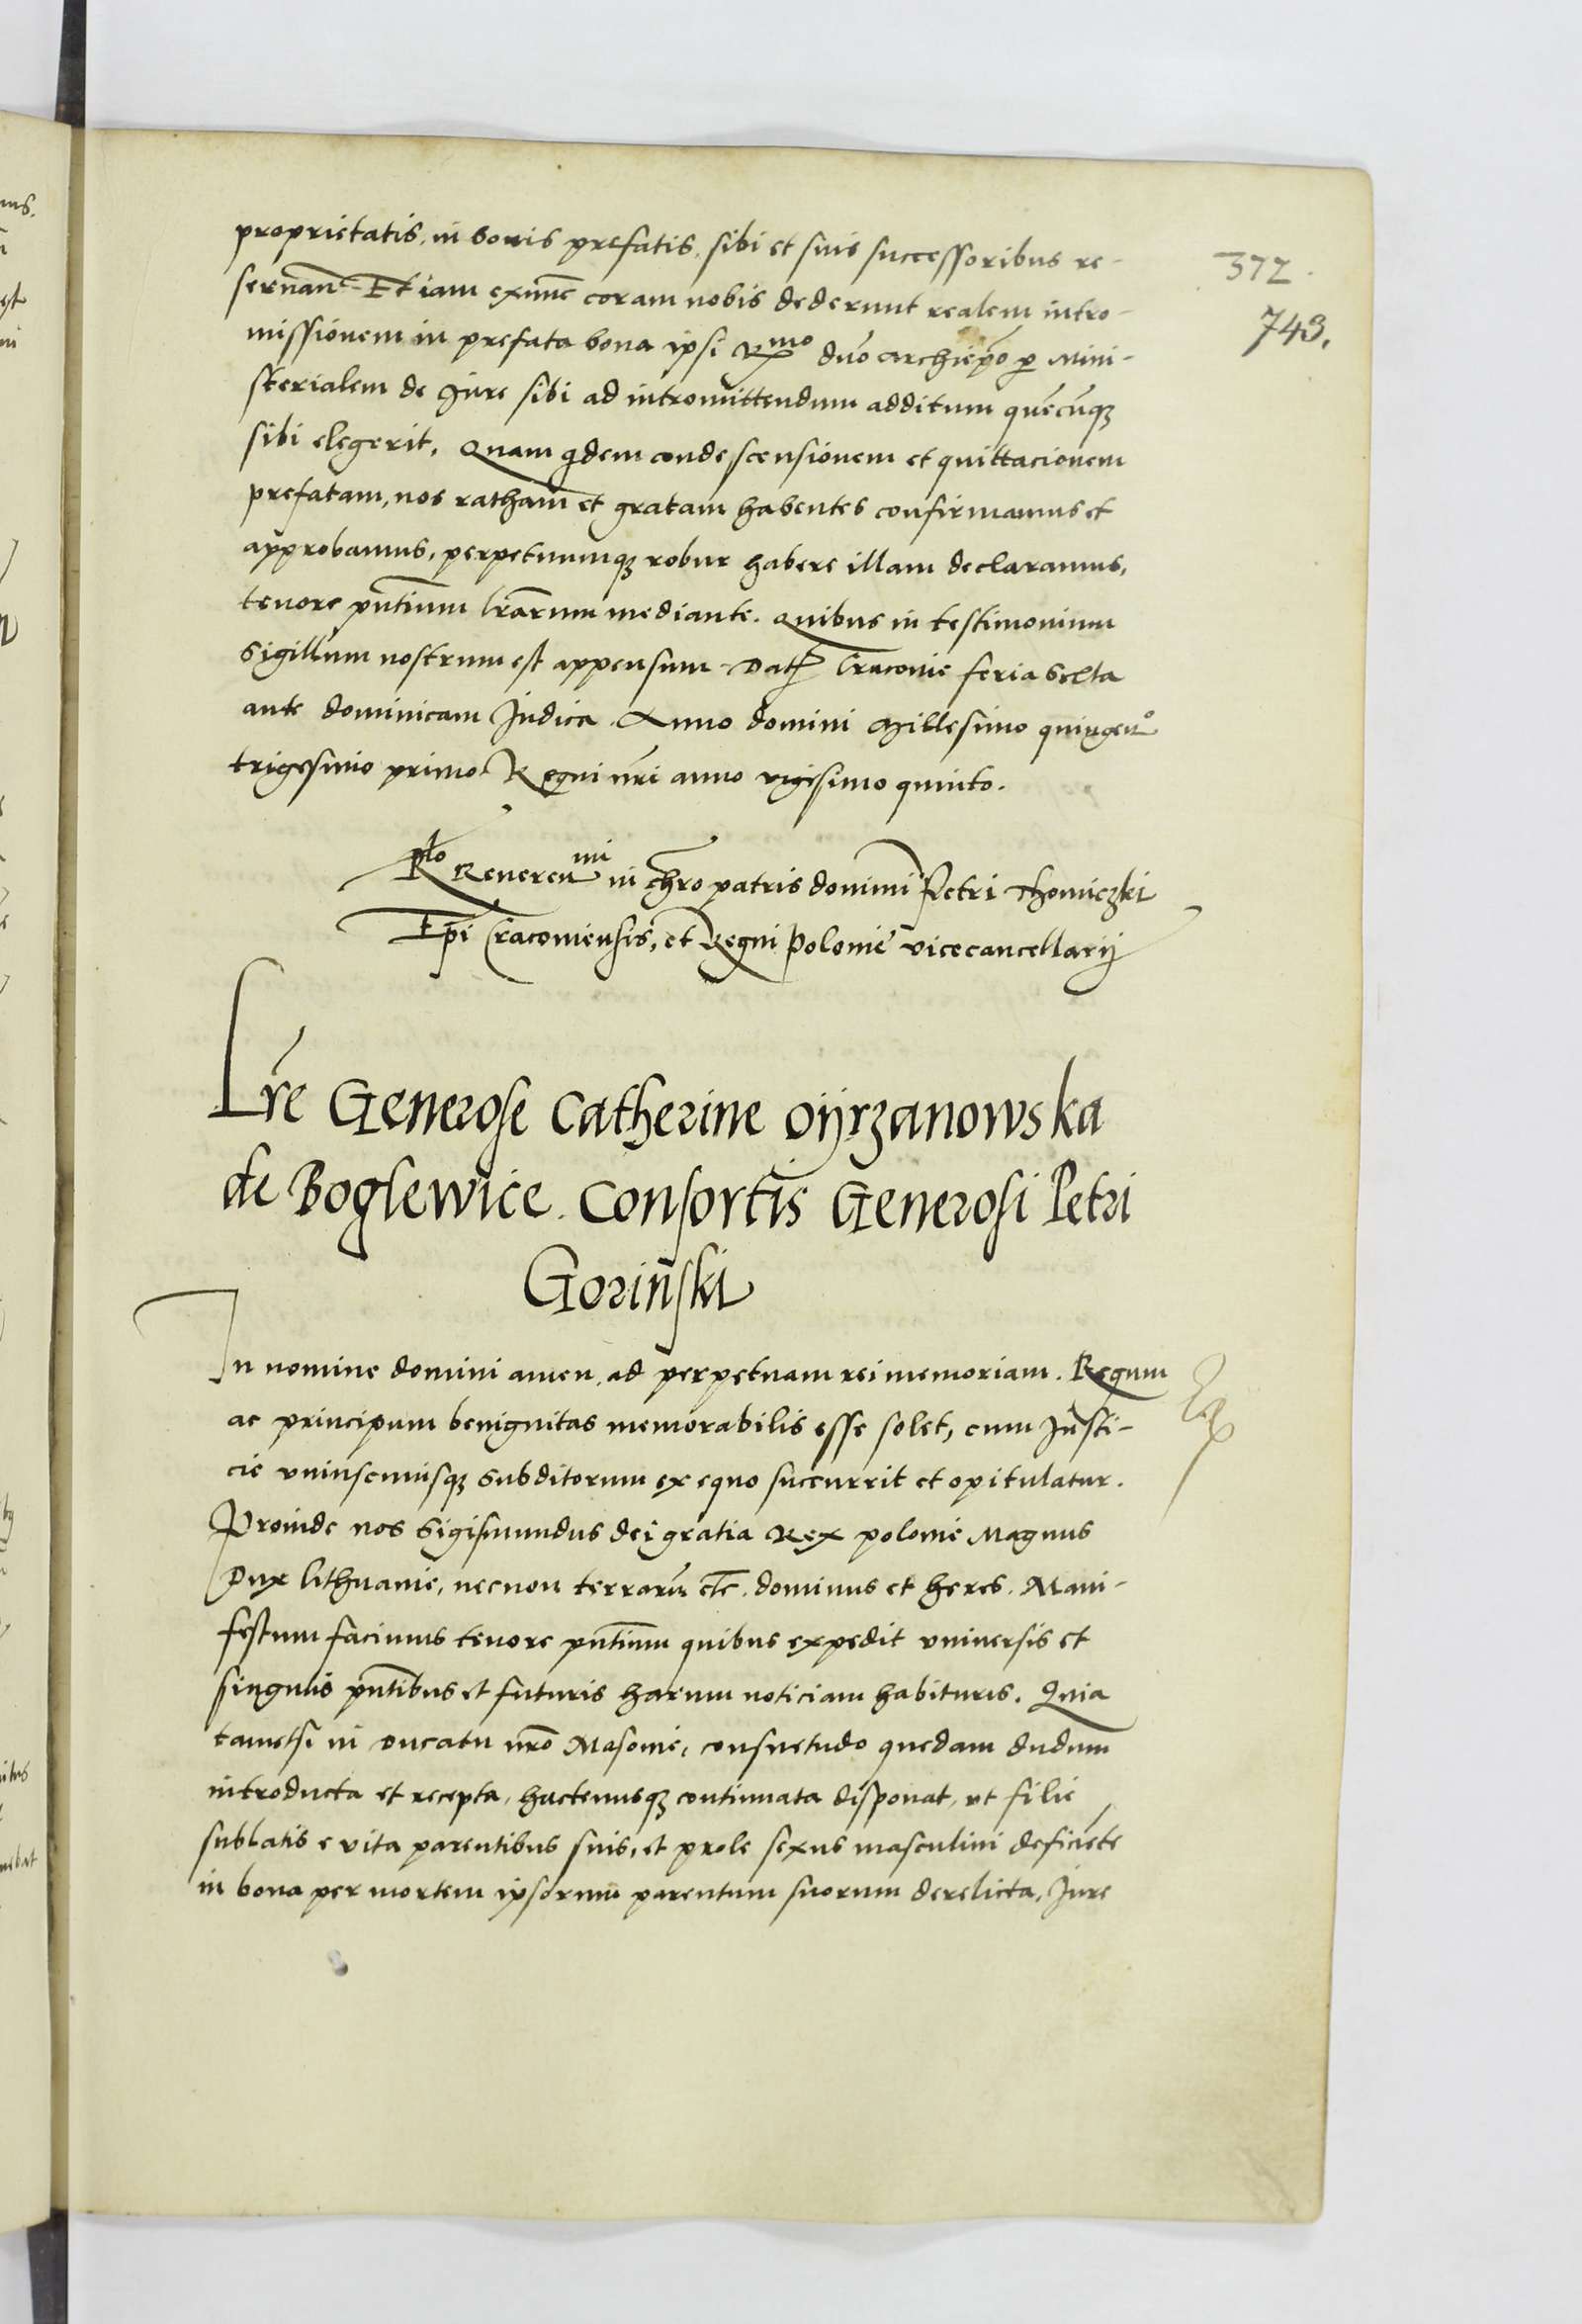 proprietatis, in bonis prefatis, sibi et suis successoribus re-
372.
seruan̄. Et iam exnūc coram nobis dederunt realem intro-
743.
missionem in prefata bona ipsi Rmo dn̄o archiep̄o p Mini-
sterialem de Jure sibi ad intromittendum additum quēcūq3
sibi elegerit. Quam qdem condescensionem et quittacionem
prefatam, nos ratham et gratam habentes confirmamus et
approbamus, perpetuumq3 robur habere illam declaramus,
tenore pn̄tium lr̄arum mediante. Quibus in testimonium
Sigillum nostrum est appensum. Dat Cracouie feria Sexta
ante dominicam Judica. Anno domini Millesimo quingen̄o
trigesimo primo Regni nr̄i anno vigesimo quinto.
Rlo Reueren mi in chr̄o patris domini Petri Thomiczki
Ep̄i Cracouiensis, et Regni Polonie vicecancellarij
Lr̄e Generose Catherine Oÿrzanowska
de Boglewice. Consortis Generosi Petri
Goriński
In nomine domini amen, ad perpetuam rei memoriam. Regum
ac principum benignitas memorabilis esse solet, cum Justi-
cie vniuscuiusq3 Subditorum ex equo succurrit et opitulatur.
Proinde nos Sigismundus dei gratia Rex polonie Magnus
Dux lithuanie, necnon terrarū etc̄. dominus et heres. Mani-
festum facimus tenore pn̄tium quibus expedit vniuersis et
singulis pn̄tibus et futuris harum noticiam habituris. Quia
tametsi in Ducatu nr̄o Masouie, consuetudo quedam dudum
introducta et recepta, hactenusq3 continuata disponat, vt filie
sublatis e vita parentibus suis, et prole sexus masculini deficiēte
in bona per mortem ipsorum parentum suorum derelicta, Jure